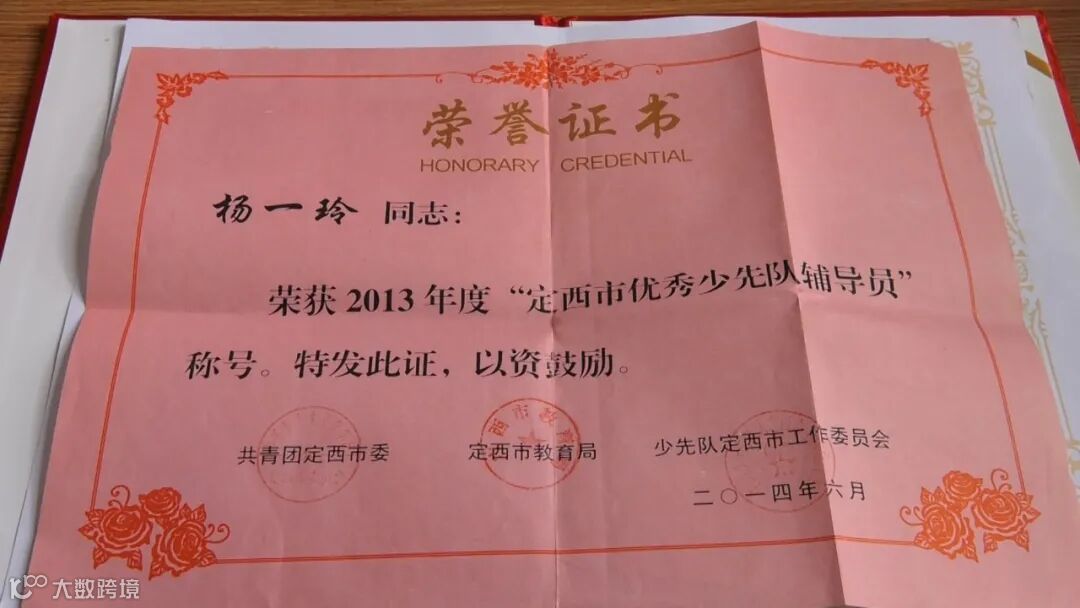 荣誉证书
HONORARY CREDENTIAL
杨一玲 同志：
荣获 2013 年度 “定西市优秀少先队辅导员”
称号。特发此证，以资鼓励。
共青团定西市委 定西市教育局 少先队定西市工作委员会
二〇一四年六月
大数跨境